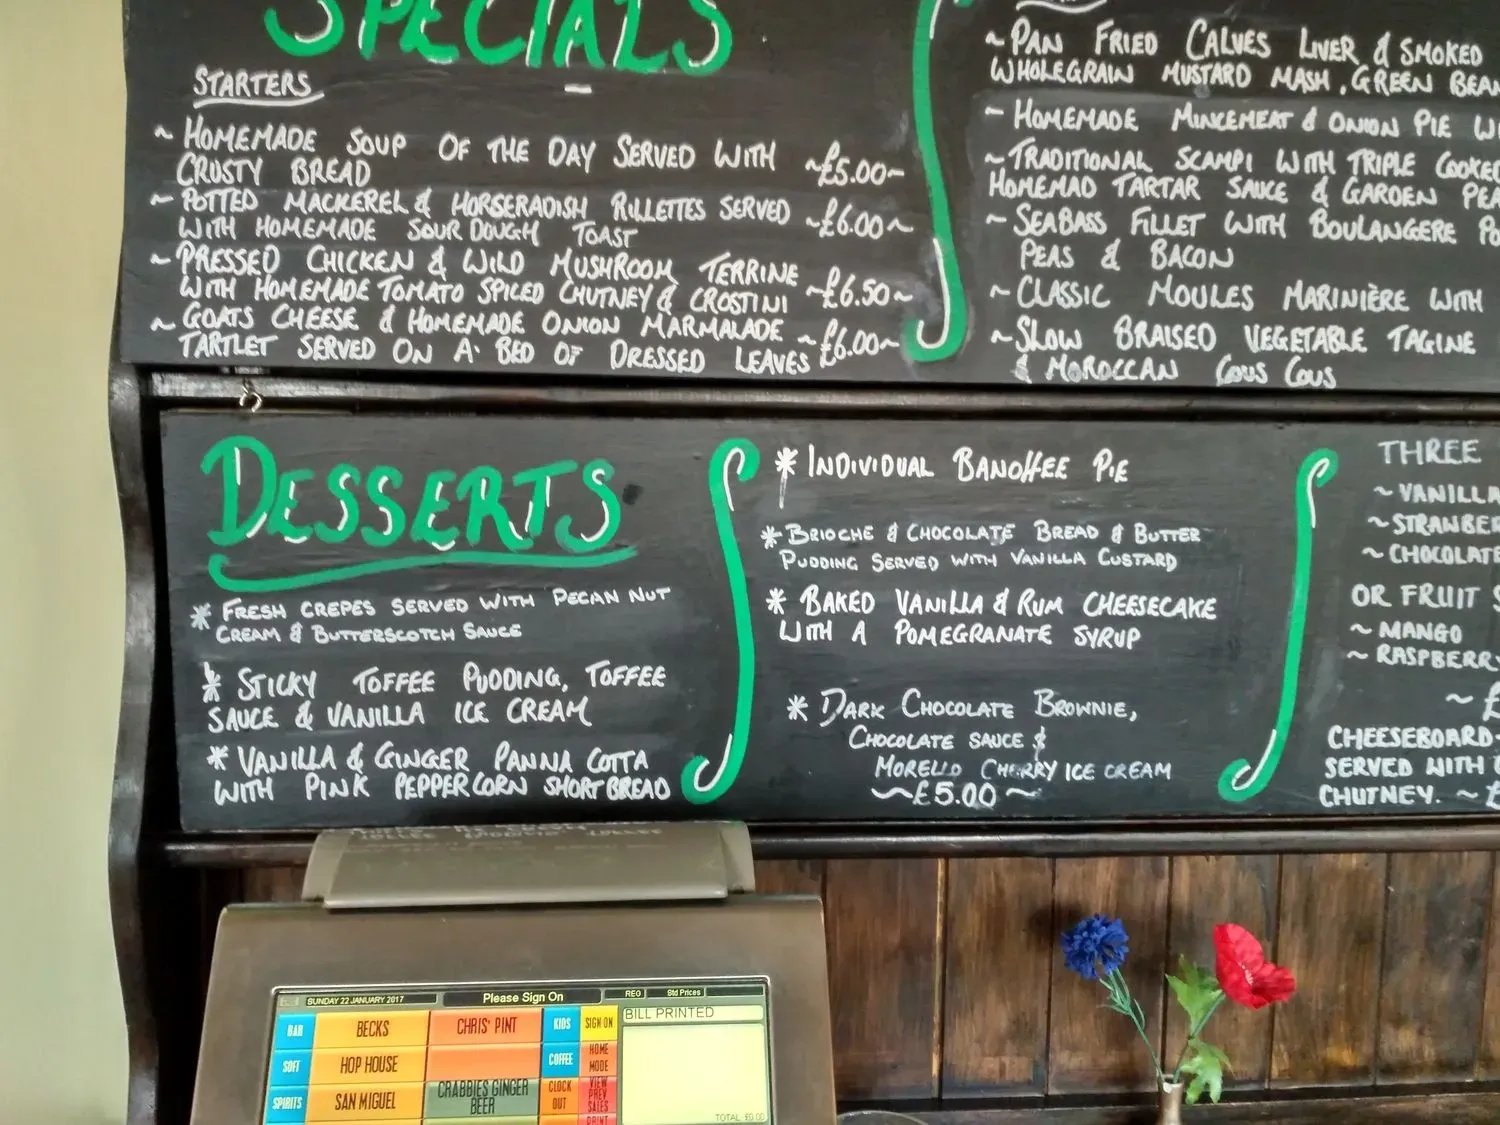 SPECIALS
STARTERS
~ HOMEMADE SOUP OF THE DAY SERVED WITH ~£5.00~
CRUSTY BREAD
~ POTTED MACKEREL & HORSERADISH RILLETTES SERVED ~£6.00~
WITH HOMEMADE SOUR DOUGH TOAST
~ PRESSED CHICKEN & WILD MUSHROOM TERRINE
WITH HOMEMADE TOMATO SPICED CHUTNEY & CROSTINI ~£6.50~
~ GOATS CHEESE & HOMEMADE ONION MARMALADE ~£6.00~
TARTLET SERVED ON A BED OF DRESSED LEAVES
~ PAN FRIED CALVES LIVER & SMOKED
WHOLEGRAIN MUSTARD MASH, GREEN BEAN
~ HOMEMADE MINCEMEAT & ONION PIE WI
~ TRADITIONAL SCAMPI WITH TRIPLE COOKED
HOMEMAD TARTAR SAUCE & GARDEN PEA
~ SEABASS FILLET WITH BOULANGERE PO
PEAS & BACON
~ CLASSIC MOULES MARINIÈRE WITH
~ SLOW BRAISED VEGETABLE TAGINE
& MOROCCAN COUS COUS
DESSERTS
* FRESH CREPES SERVED WITH PECAN NUT
CREAM & BUTTERSCOTCH SAUCE
* STICKY TOFFEE PUDDING, TOFFEE
SAUCE & VANILLA ICE CREAM
* VANILLA & GINGER PANNA COTTA
WITH PINK PEPPERCORN SHORTBREAD
* INDIVIDUAL BANOFFEE PIE
* BRIOCHE & CHOCOLATE BREAD & BUTTER
PUDDING SERVED WITH VANILLA CUSTARD
* BAKED VANILLA & RUM CHEESECAKE
WITH A POMEGRANATE SYRUP
* DARK CHOCOLATE BROWNIE,
CHOCOLATE SAUCE &
MORELLO CHERRY ICE CREAM
~£5.00~
THREE
~ VANILLA
~ STRAWBER
~ CHOCOLATE
OR FRUIT S
~ MANGO
~ RASPBERRY
~ £
CHEESEBOARD
SERVED WITH
CHUTNEY. ~ £
SUNDAY 22 JANUARY 2017
Please Sign On
REG
Std Prices
BAR
BECKS
CHRIS' PINT
KIDS
SIGN ON
BILL PRINTED
SOFT
HOP HOUSE
COFFEE
HOME MODE
SPIRITS
SAN MIGUEL
CRABBIES GINGER BEER
CLOCK OUT
VIEW PREV SALES
PRINT
TOTAL £0.00